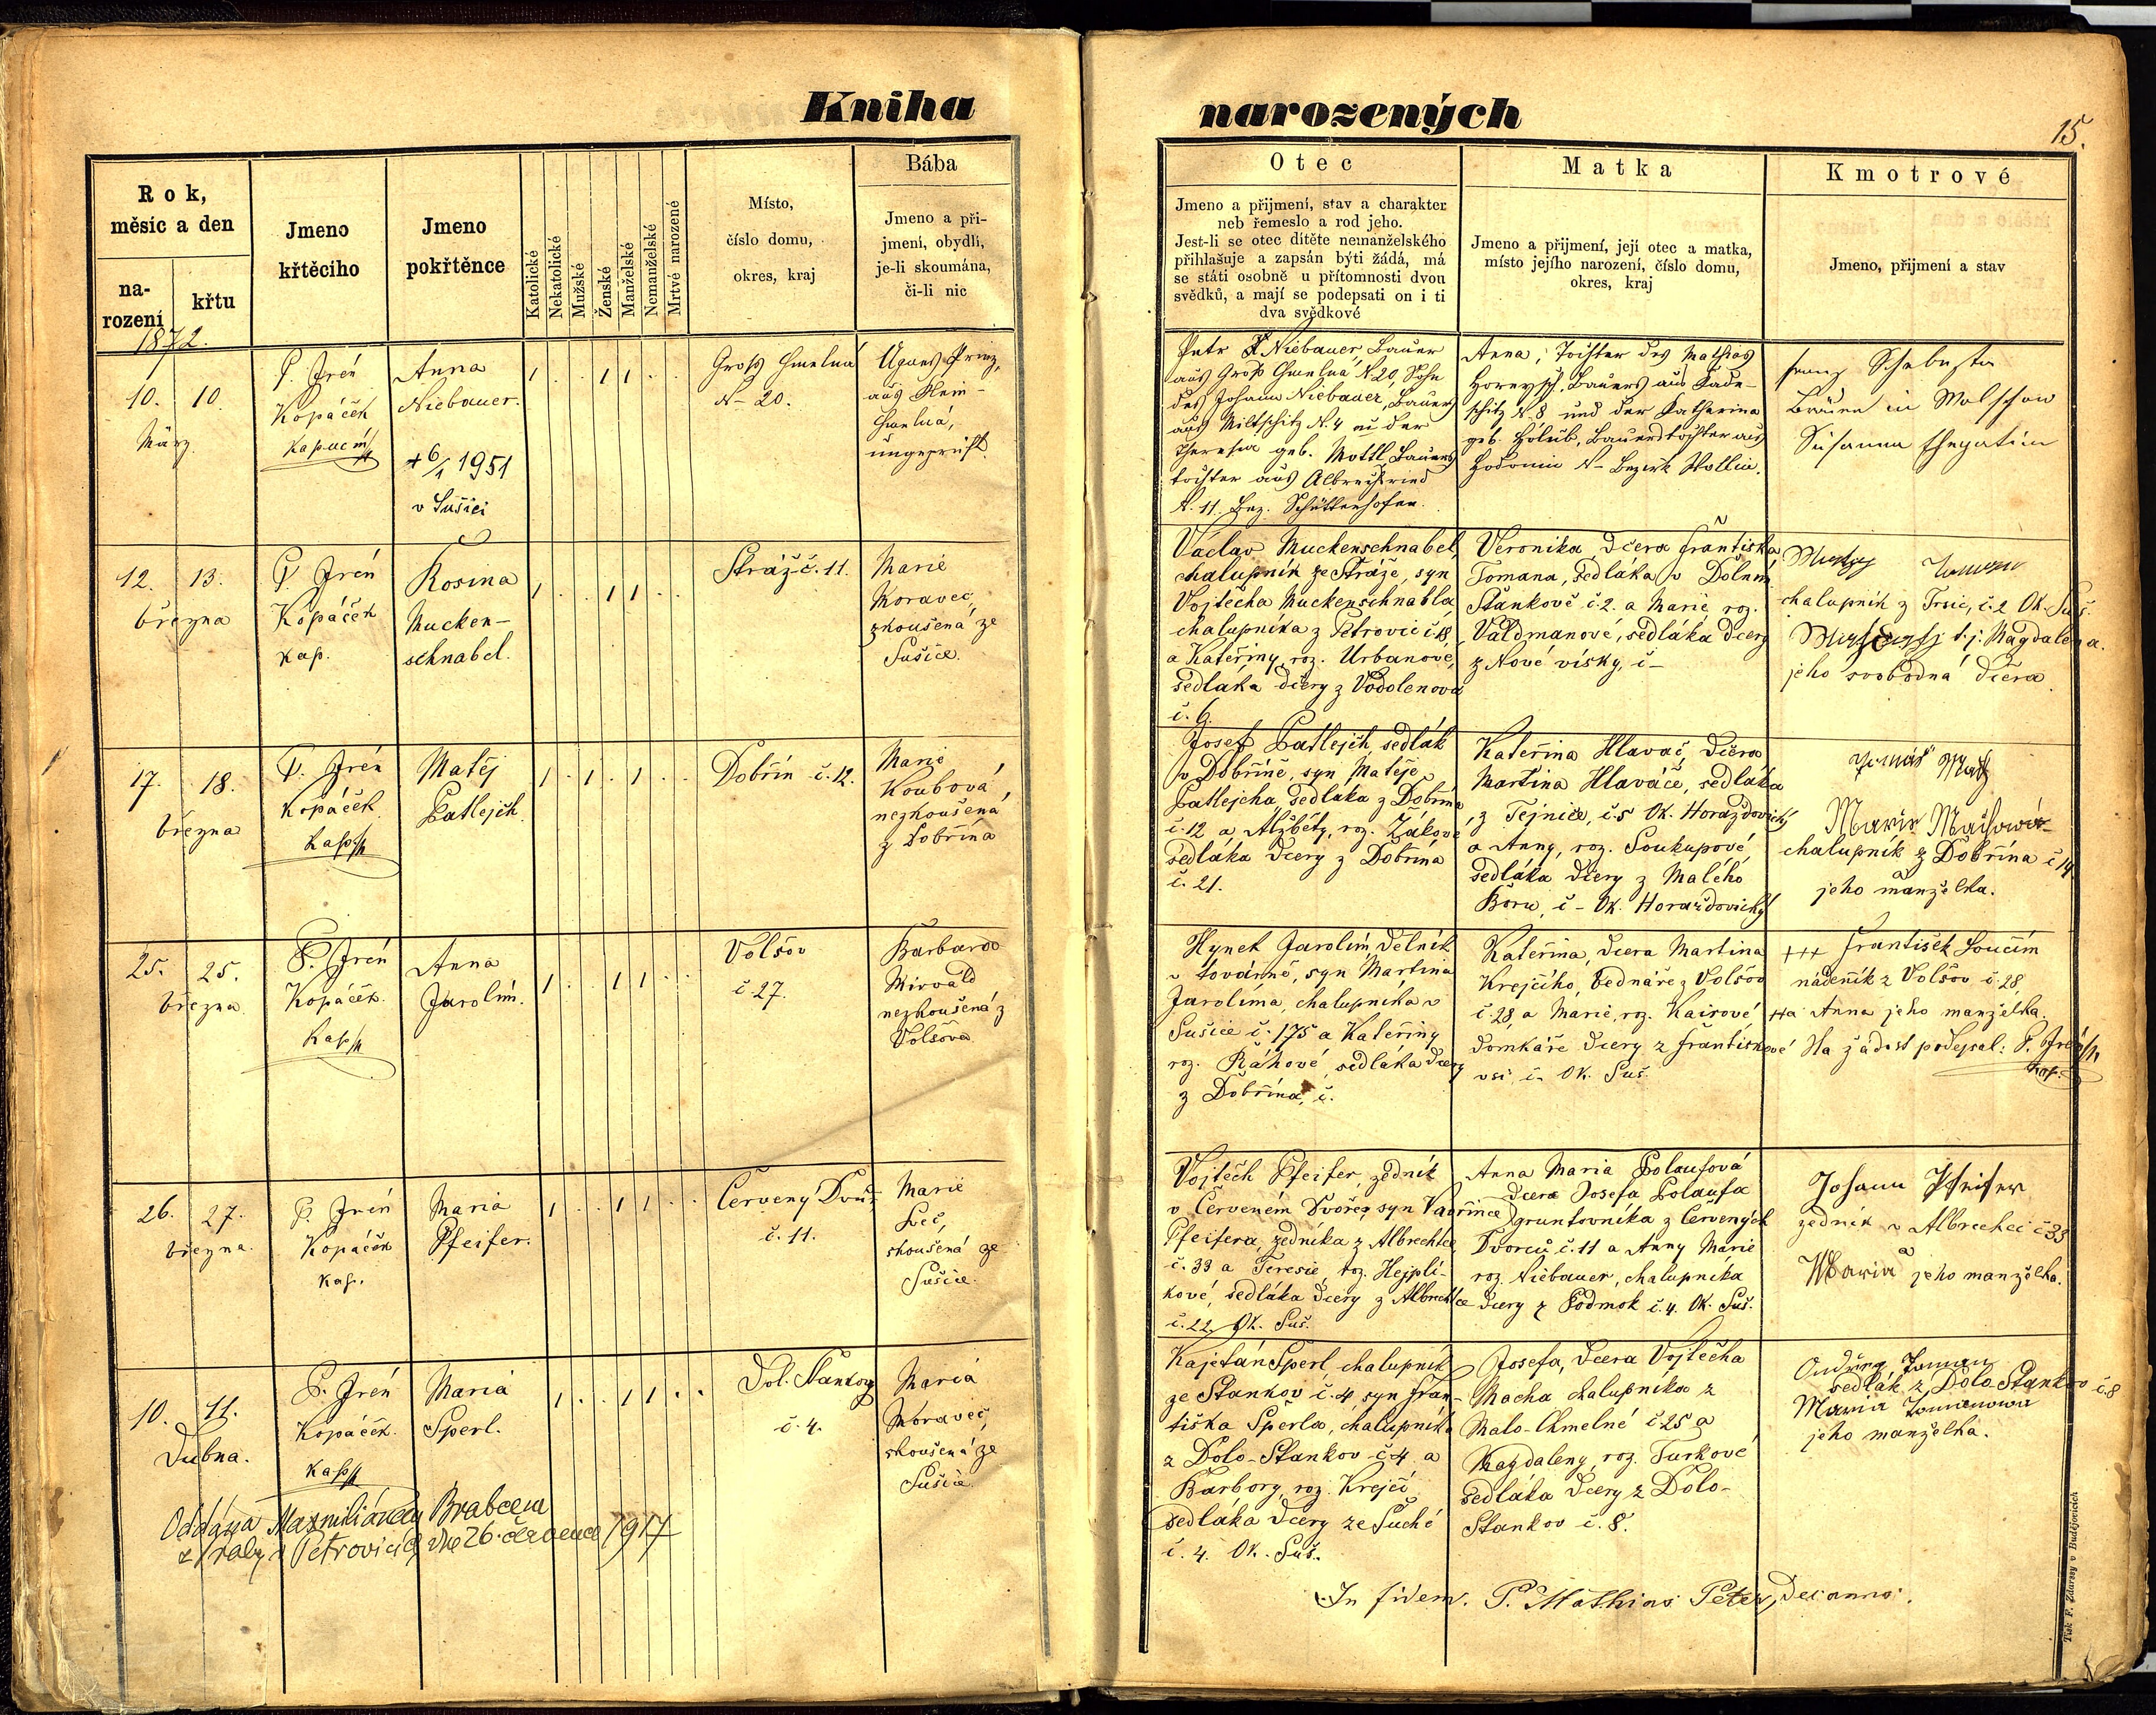 Kniha
narozených
15.
Rok,
měsíc a den
na-
rození
křtu
Jmeno
křtěcího
Jmeno
pokřtěnce
Katolické
Nekatolické
Mužské
Ženské
Manželské
Nemanželské
Mrtvé narozené
Místo,
číslo domu,
okres, kraj
Bába
Jmeno a pří-
jmení, obydlí,
je-li skoumána,
či-li nic
Otec
Jmeno a přijmení, stav a charakter
neb řemeslo a rod jeho.
Jest-li se otec dítěte nemanželského
přihlašuje a zapsán býti žádá, má
se státi osobně u přítomnosti dvou
svědků, a mají se podepsati on i ti
dva svědkové
Matka
Jmeno a přijmení, její otec a matka,
místo jejího narození, číslo domu,
okres, kraj
Kmotrové
Jmeno, přijmení a stav
1872.
10. 10.
März
P. Irén
Kopáček
kapucín
Anna
Niebauer.
+ 6/1 1951
v Sušici
1 . . 1 1 . .
Groß Chmelná
N 20.
Agnes Prinz,
aus Klein-
Chmelná,
ungeprüft.
Petr Niebauer, Bauer
aus Groß Chmelna N 20, Sohn
des Johann Niebauer, Bauers
aus Miltschitz N. 4 und der
Theresia geb. Mottl Bauers
tochter aus Albrechtsried
N. 11. Bez. Schüttenhofen.
Anna, Tochter des Mathias
Horeysch, Bauers aus Kade-
schitz N 8 und der Katharina
geb. Holub, Bauerstochter aus
N- Bezirk Wollin.
Franz Schebesta
Bauer in Wolschow
Susanna
12. 13.
března
P. Irén
Kopáček
kap.
Rosina
Mucken-
schnabel.
1 . . 1 1 . .
Stráž č. 11.
Marie
Moravec,
zkoušená ze
Sušice.
Václav Muckenschnabel,
chalupník ze Stráže, syn
Vojtěcha Muckenschnabla,
chalupníka z Petrovic č. 18
a Kateřiny, roz. Urbanové,
sedláka dcery z Vodolenova
č. 6.
Veronika, dcera Františka
Tomana, sedláka v Dolním
Staňkově č. 2. a Marie, roz.
Valdmanové, sedláka dcery
z Nové vísky, č -
chalupník z Trsic, č. 2 Ok. Suš.
t. j. Magdalena.
jeho svobodná dcera.
17. 18.
března
P. Irén
Kopáček.
kap.
Matěj
Patlejch
1 . 1 . 1 . .
Dobřín č. 12.
Marie
Koubová,
nezkoušená,
z Dobřína
Josef Patlejch, sedlák
v Dobříně, syn Matěje
Patlejcha, sedláka z Dobřína
č. 12 a Alžběty, roz. Žákové
sedláka dcery z Dobřína
č. 21.
Kateřina Hlaváč, dcera
Martina Hlaváče, sedláka
z Tejnice, č. 5 Ok. Horažďovický
a Anny, roz. Soukupové,
sedláka dcery z Malého
Boru, č - Ok. Horažďovický
Tomáš
Marie Mašková
chalupník z Dobřína č 14.
a jeho manželka.
25. 25.
března
P. Irén
Kopáček.
kap.
Anna
Jarolím.
1 . . 1 1 . .
Volšov
č. 27.
Barbara
Mirvald
nezkoušená z
Volšova
Hynek Jarolím, dělník
v továrně, syn Martina
Jarolíma, chalupníka v
Sušice č. 175 a Kateřiny
roz. Ráhové, sedláka dcery
z Dobřína, č.
Kateřina, dcera Martina
Krejčího, bednáře z Volšov
č. 28, a Marie, roz. Kairové
domkáře dcery z Františkové
vsi, č. Ok. Suš.
+++ František Loučím
nádeník z Volšov č. 28,
++a Anna jeho manželka.
Na žádost podepsal: P. Irén
kap.
26. 27.
března.
P. Irén
Kopáček
kap.
Maria
Pfeifer.
1 . . 1 1 . .
Červený Dvůr,
č. 11.
Marie
skoušená ze
Sušice.
Vojtěch Pfeifer, zedník
v Červeném Dvořez, syn Vavřince
Pfeifera, zedníka z Albrechtce,
č. 33 a Teresie, roz. Hejplí-
kové, sedláka dcery z Albrechtce
č. 22. Ok. Suš.
Anna Maria Polaufová
dcera Josefa Polaufa
gruntovníka z Červených
Dvorců č. 11 a Anny Marie
roz. Niebauer, chalupníka
dcery z Podmok č. 4. Ok. Suš.
Johann Pfeifer
zedník v Albrechtci č 33
a
Maria jeho manželka.
10. 11.
Dubna.
P. Irén
Kopáček.
kap.
Maria
Sperl.
1 . . 1 1 . .
Dol. Staňkov
č. 4.
Maria
Moravec,
skoušená ze
Sušice.
Oddána Maxmiliánem Brabcem
z Prahy v Petrovicích, dne 26. července 1917
Kajetán Sperl, chalupník
ze Stankov č. 4, syn Fran-
tiška Sperla, chalupníka
z Dolo-Stankov č 4 a
Barbory, roz. Krejčí,
sedláka dcery ze Suché
č. 4. Ok. Suš.
Josefa, dcera Vojtěcha
Macha chalupníka z
Malo-Chmelné č 25 a
Magdaleny, roz. Turkové
sedláka dcery z Dolo-
Stankov č. 8.
Ondřeg Toman
sedlák z Dolo Stankov č. 8
Maria Tomanowa
jeho manželka.
In fidem. P. Mathias Peter, decanus.
Tisk F. Zdarssy v Budějovicích